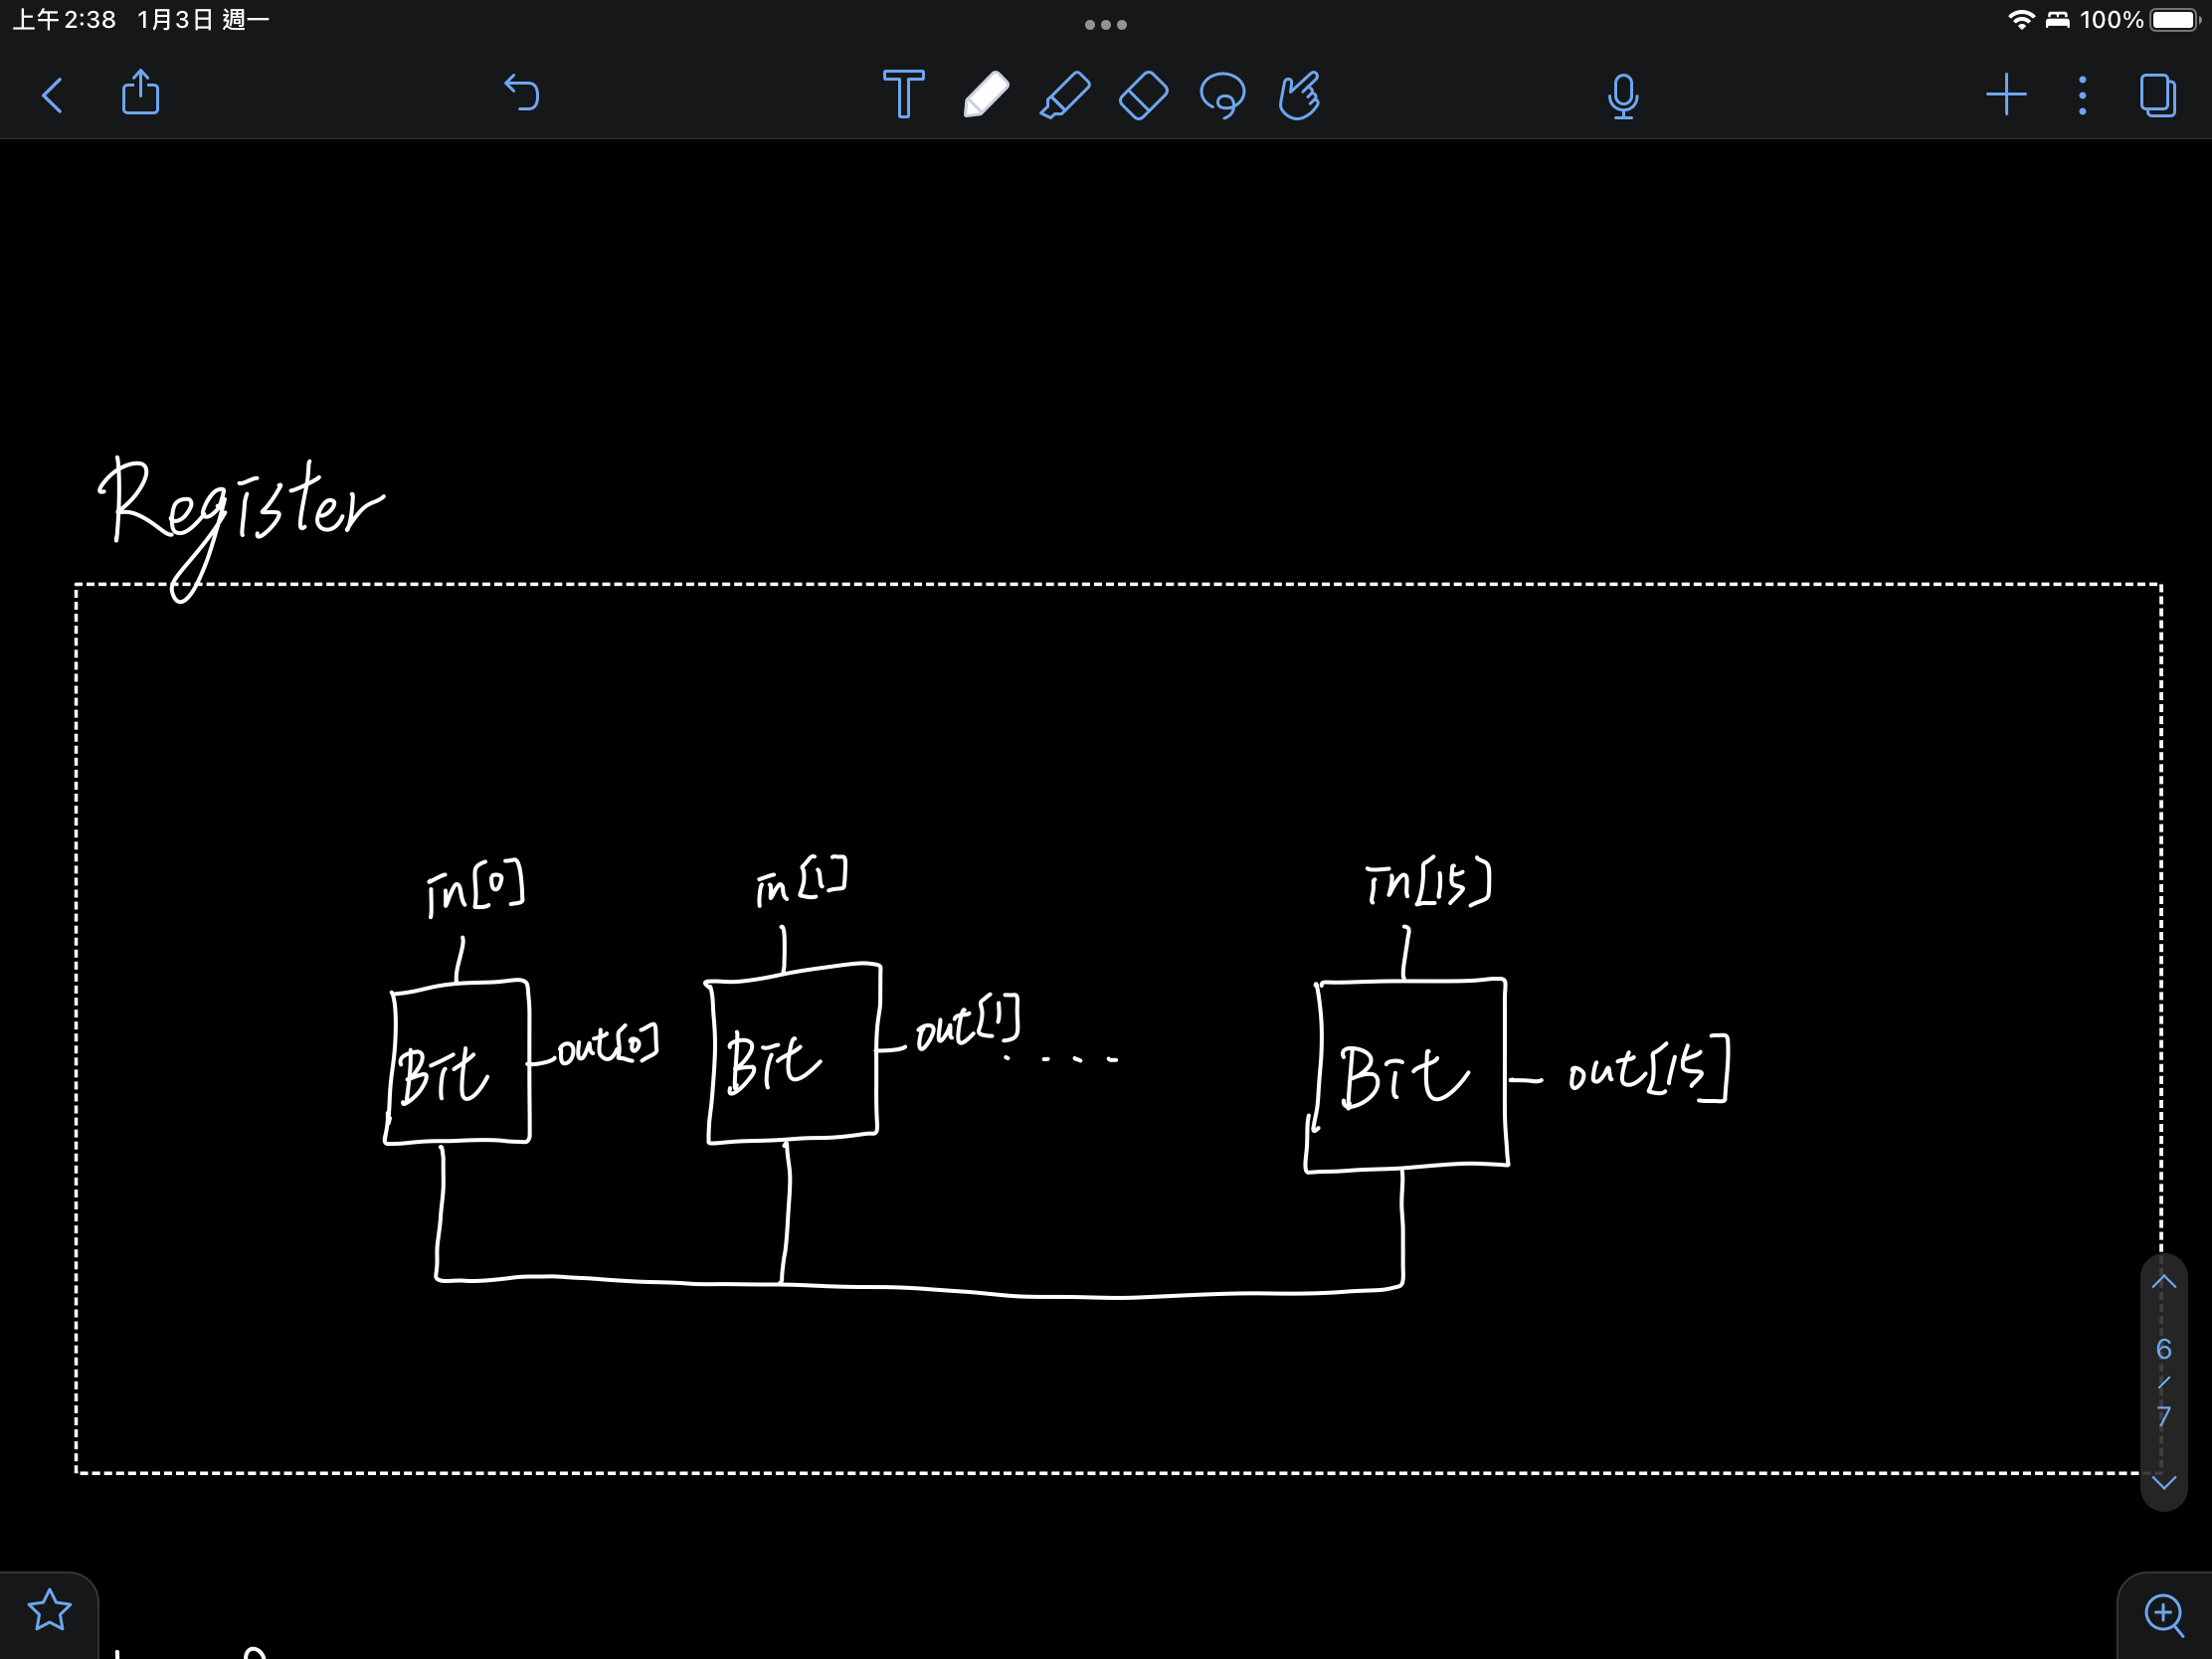 上午2:38 1月3日 週一 100%
Register
in[0] in[1] in[15]
Bit out[0] Bit out[1] .... Bit out[15]
6
/
7